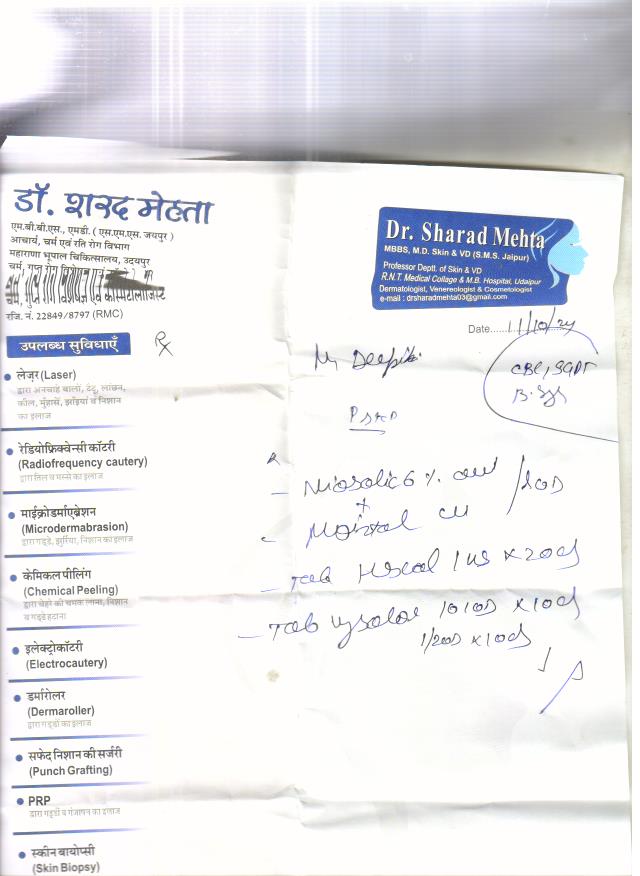 डॉ. शरद मेहता
एम.बी.बी.एस., एमडी. ( एस.एम.एस. जयपुर )
आचार्य, चर्म एवं रति रोग विभाग
महाराणा भूपाल चिकित्सालय, उदयपुर
चर्म, गुप्त रोग विशेषज्ञ एवं
चर्म, गुप्त रोग विशेषज्ञ एवं कॉस्मेटोलोजिस्ट
रजि. नं. 22849/8797 (RMC)
Dr. Sharad Mehta
MBBS, M.D. Skin & VD (S.M.S. Jaipur)
Professor Deptt. of Skin & VD
R.N.T. Medical Collage & M.B. Hospital, Udaipur
Dermatologist, Venereologist & Cosmetologist
e-mail : drsharadmehta03@gmail.com
Date......11/10/24
उपलब्ध सुविधाएँ
Rx
CBC, SGPT
B. Sgr
लेज़र (Laser)
द्वारा अनचाहे बालों, टेटू, लांछन,
कील, मुंहासें, झाँइयां व निशान
का इलाज
रेडियोफ्रिक्वेन्सी कॉटरी
(Radiofrequency cautery)
द्वारा तिल व मस्से का इलाज
माईक्रोडर्माएब्रेशन
(Microdermabrasion)
द्वारा गड्डे, झुर्रिया, निशान का इलाज
केमिकल पीलिंग
(Chemical Peeling)
द्वारा चेहरे की चमक लाना, निशान
व गड्डे हटाना
इलेक्ट्रोकॉटरी
(Electrocautery)
डर्मारोलर
(Dermaroller)
द्वारा गड्डों का इलाज
सफेद निशान की सर्जरी
(Punch Grafting)
PRP
द्वारा गड्डों व गंजापन का इलाज
स्कीन बायोप्सी
(Skin Biopsy)
Deepik
6 %
+
Tab 1 x 20d
Tab 10 10D x 10d
1/2 OD x 10d